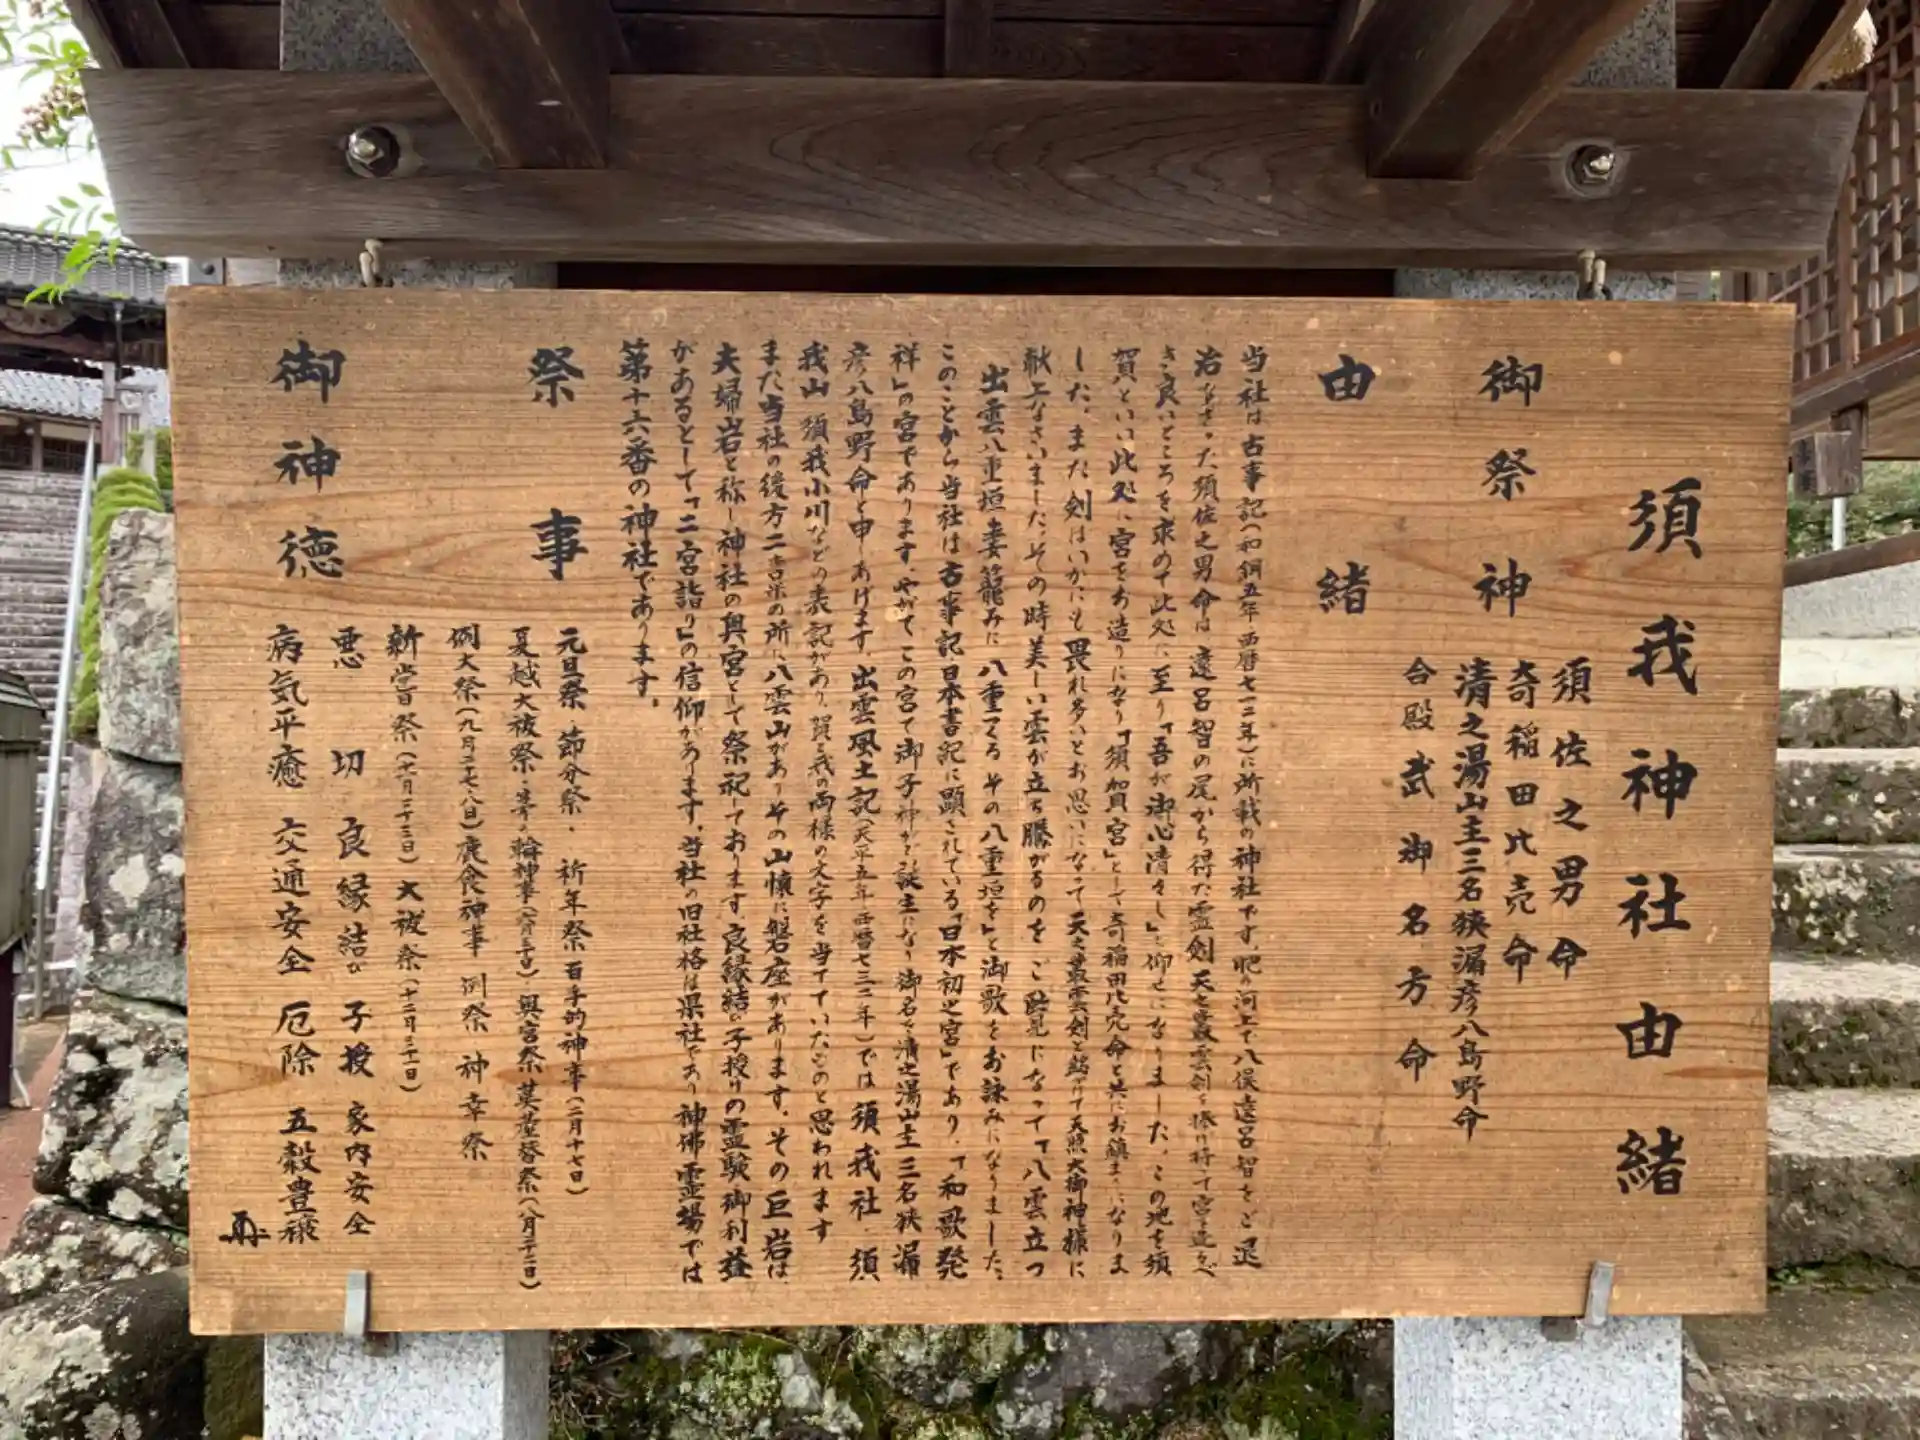 須我神社由緒
御祭神
須佐之男命
奇稲田比売命
清之湯山主三名狭漏彦八島野命
合殿 武御名方命
由緒
当社は古事記(和銅五年 西暦七一二年)に所載の神社です。肥の河上で八俣遠呂智をご退
治なさった須佐之男命は遠呂智の尾から得た霊剣天之叢雲剣を捧げ持て宮を造るべ
き良いところを求めて此処に至り「吾が御心清々し」と仰せになりました。この地を須
賀といい此処に宮をお造りになり「須賀宮」として奇稲田比売命と共にお鎮まりになりま
した。また剣はいかにも畏れ多いとお思いになって天之叢雲剣と銘けて天照大御神様に
献上なさいました。その時美しい雲が立ち騰がるのをご覧になって「八雲立つ
出雲八重垣妻籠みに八重つくるその八重垣を」と御歌をお詠みになりました。
このことから当社は古事記日本書記に顕されている「日本初之宮」であり、「和歌発
祥」の宮であります。やがて、この宮で御子神が誕生になり御名を清之湯山主三名狭漏
彦八島野命と申しあげます。出雲風土記(天平五年・西暦七三二年)では須我社・須
我山・須我小川などの表記があり、賀と我の両様の文字を当てていたものと思われます
また当社の後方二吉米の所に八雲山がありその山懐に磐座があります。その巨岩は
夫婦岩と称し神社の奥宮として祭祀しております。良縁結び子授けの霊験・御利益
があるとして「二宮詣り」の信仰があります。当社の旧社格は県社であり神佛霊場では
第十六番の神社であります。
祭事
元旦祭・節分祭・祈年祭百手的神事(二月十七日)
夏越大祓祭・茅の輪神事(六月三十日)・奥宮祭・墓産替祭(八月二十二日)
例大祭(九月二十七・八日)鹿食神事 例祭 神幸祭
新嘗祭(十一月二十三日)大祓祭(十二月三十一日)
御神徳
悪切 良縁結び 子授 家内安全
病気平癒 交通安全 厄除 五穀豊穣